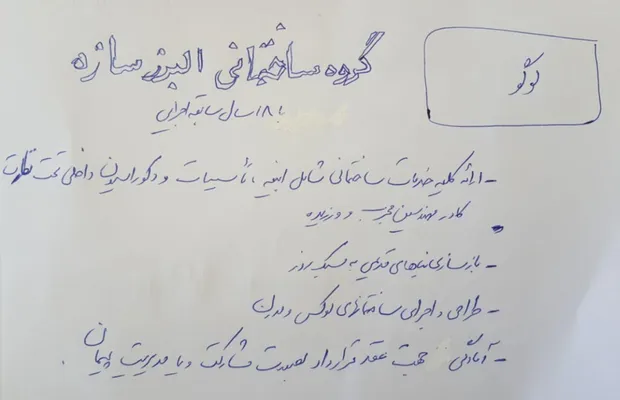 لوگو
گروه ساختمانی البرز سازه
با ۱۸ سال سابقه اجرایی
- ارائه کلیه خدمات ساختمانی شامل ابنیه، تأسیسات و دکوراسیون داخلی تحت نظارت
کادر مهندسین مجرب و ورزیده
- بازسازی بناهای قدیمی به سبک روز
- طراحی و اجرای ساختمانهای لوکس و مدرن
- آمادگی جهت عقد قرارداد بصورت مشارکت و یا مدیریت پیمان